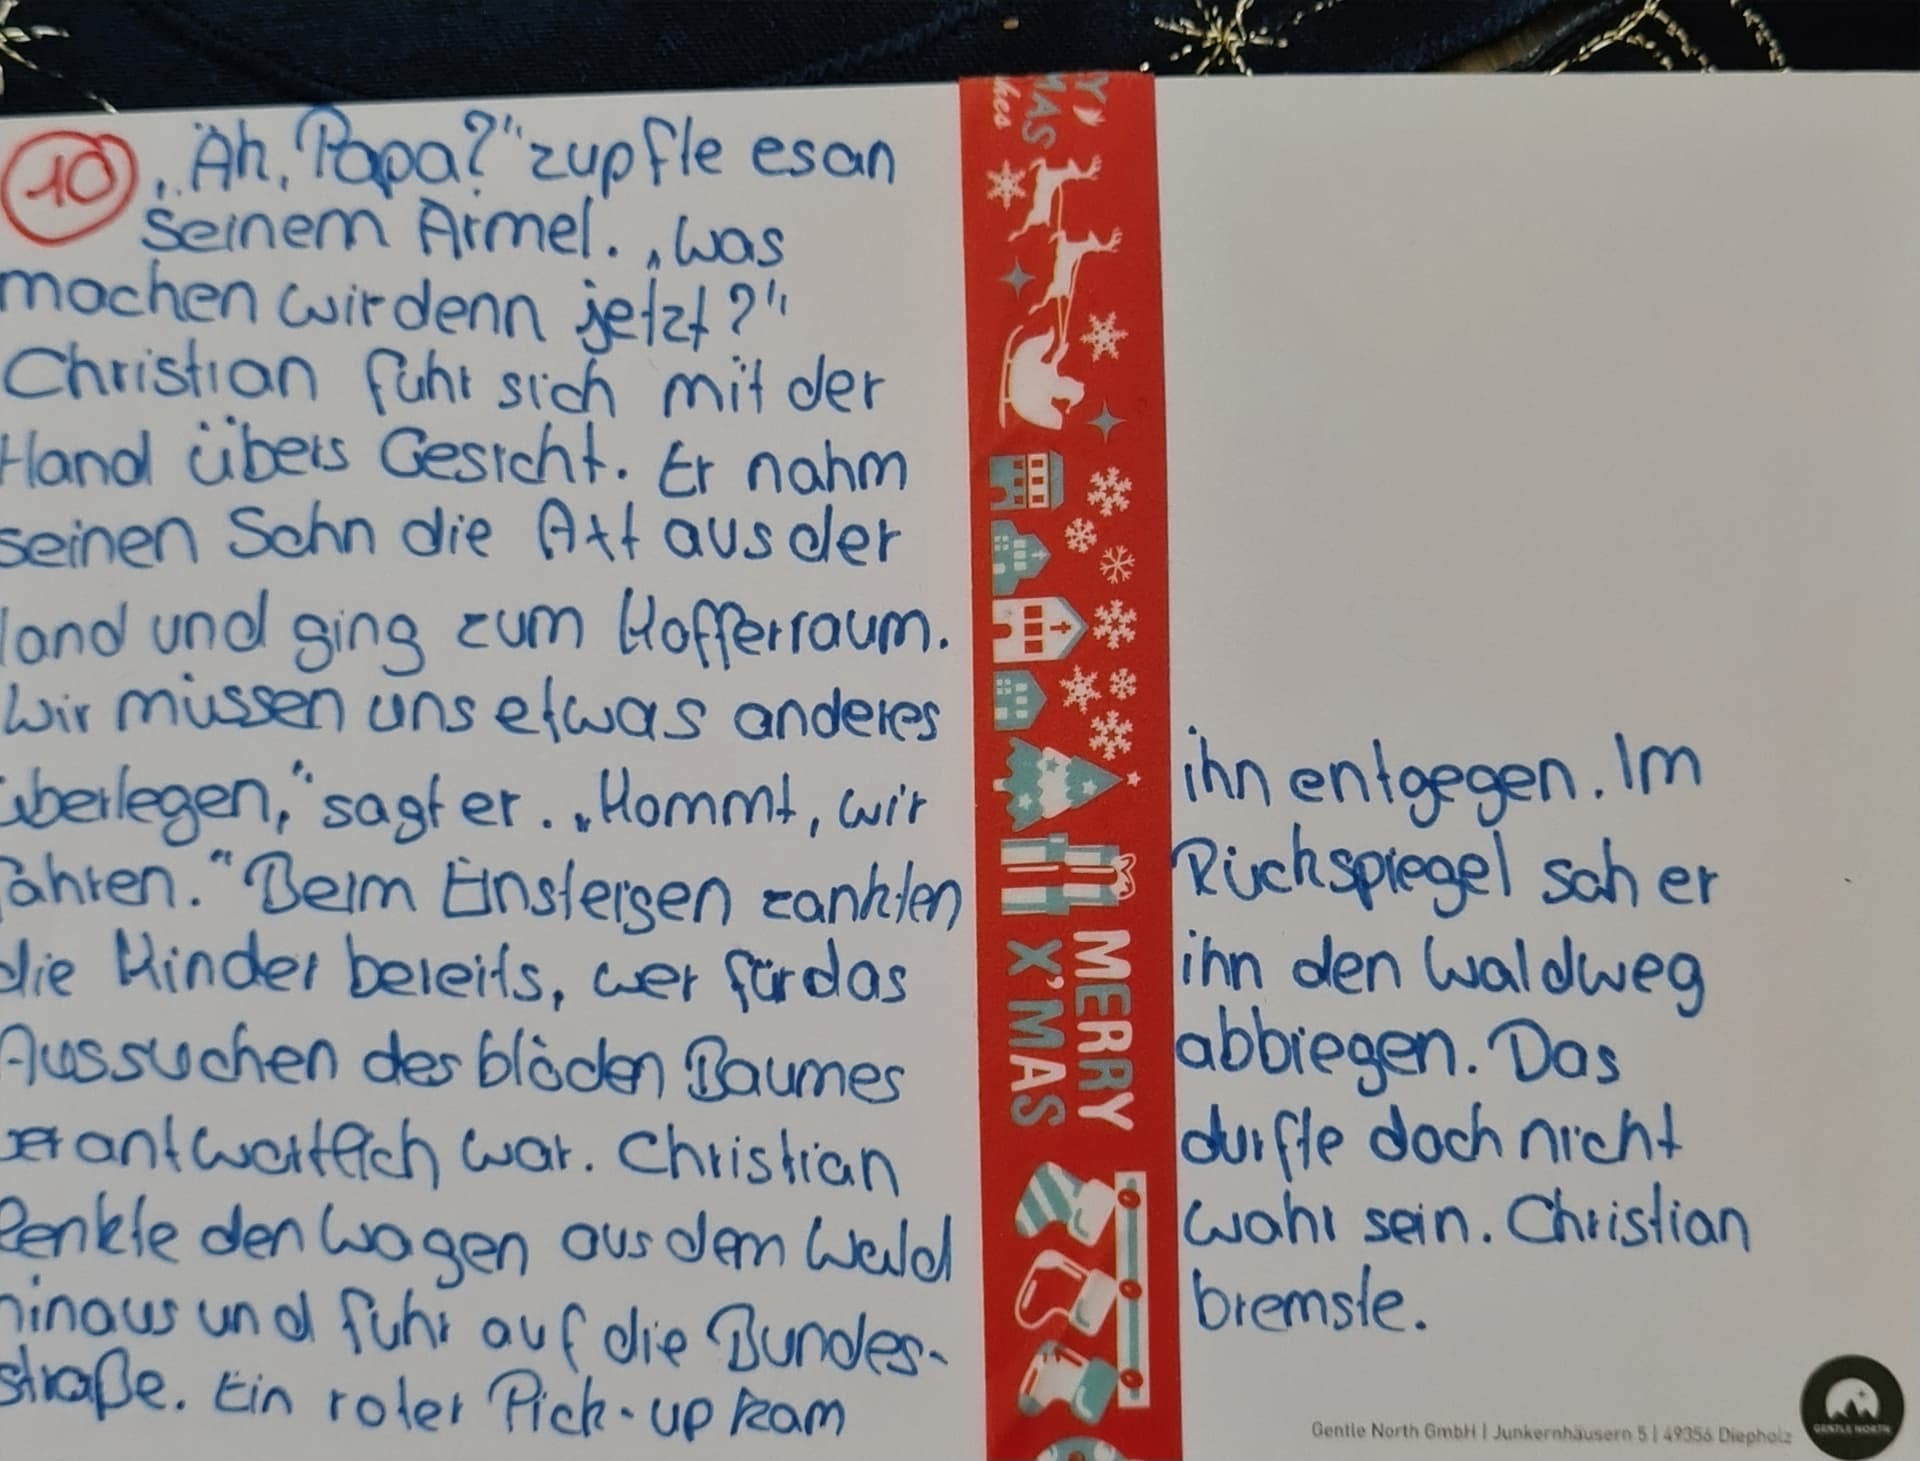 10
„Äh, Papa?" zupfte es an
seinem Ärmel. „Was
machen wir denn jetzt?"
Christian fuhr sich mit der
Hand übers Gesicht. Er nahm
seinen Sohn die Axt aus der
Hand und ging zum Kofferraum.
Wir müssen uns etwas anderes
überlegen," sagt er. „Kommt, wir
fahren." Beim Einsteigen zankten
die Kinder bereits, wer für das
Aussuchen des blöden Baumes
verantwortlich war. Christian
lenkte den Wagen aus dem Wald
hinaus und fuhr auf die Bundes-
straße. Ein roter Pick-up kam
ihn entgegen. Im
Rückspiegel sah er
ihn den Waldweg
abbiegen. Das
durfte doch nicht
wahr sein. Christian
bremste.
MERRY
X'MAS
Gentle North GmbH | Junkernhäusern 5 | 49356 Diepholz
GENTLE NORTH